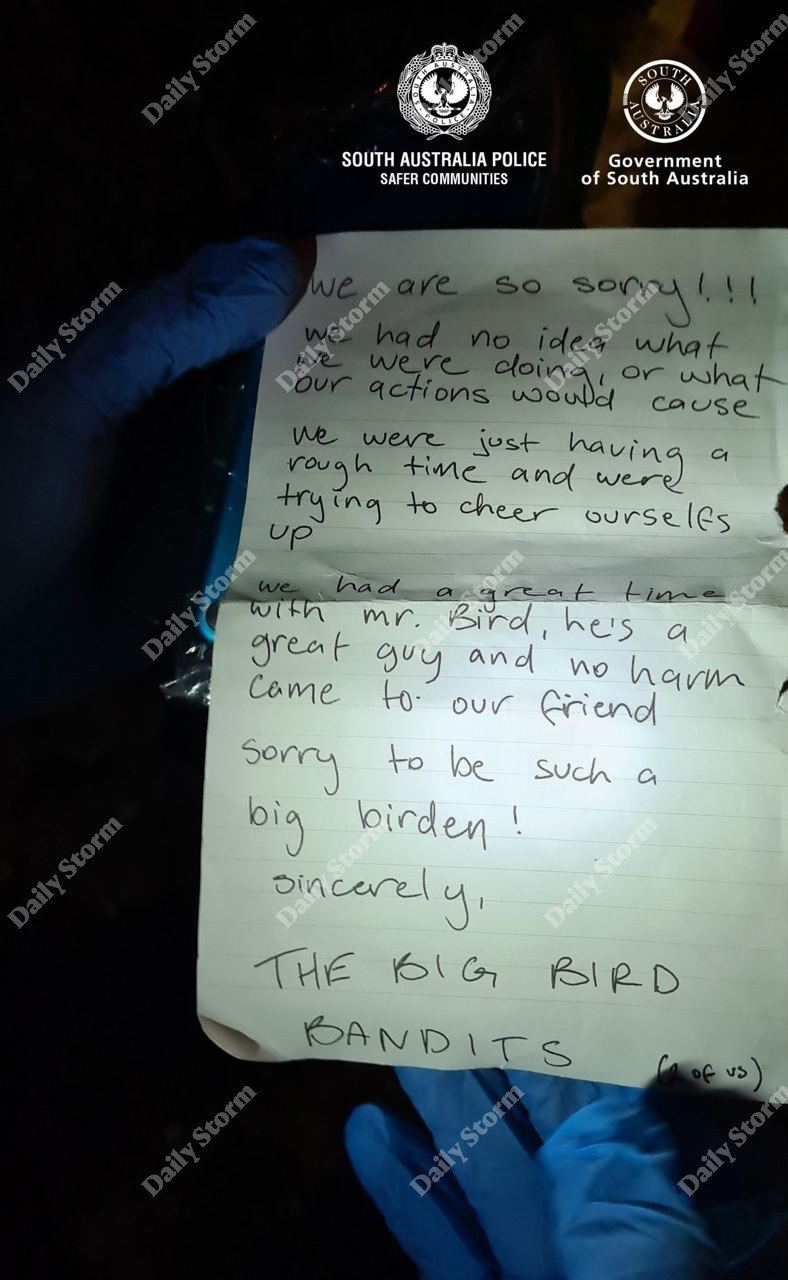 Daily Storm
Daily Storm
Daily Storm
SOUTH AUSTRALIA
POLICE
SOUTH AUSTRALIA POLICE
SAFER COMMUNITIES
SOUTH
AUSTRALIA
Government
of South Australia
we are so sorry!!!
Daily Storm
Daily Storm
Daily Storm
we had no idea what
we were doing, or what
our actions would cause
we were just having a
rough time and were
trying to cheer ourselfs
up
Daily Storm
Daily Storm
Daily Storm
we had a great time
with mr. Bird, he's a
great guy and no harm
came to our friend
sorry to be such a
big birden!
Daily Storm
Daily Storm
Daily Storm
sincerely,
THE BIG BIRD
BANDITS
(2 of us)
Daily Storm
Daily Storm
Daily Storm